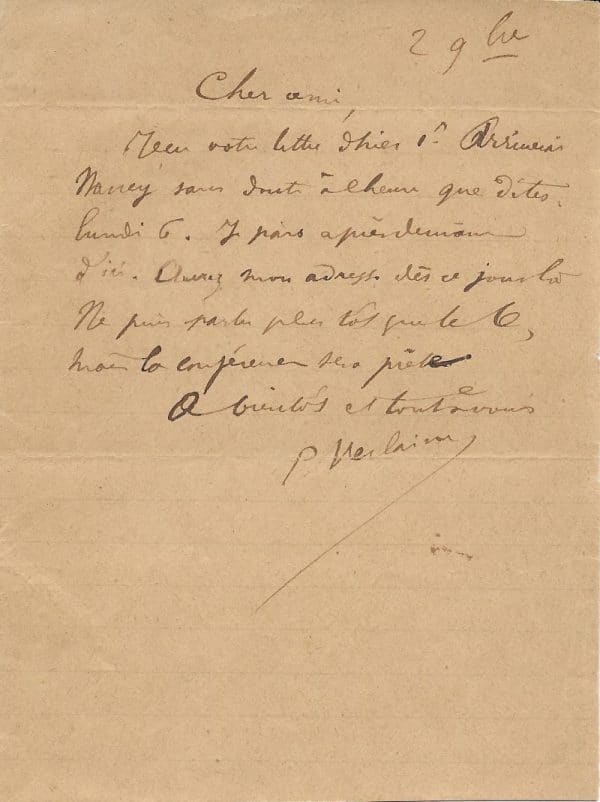 2 9bre
Cher ami,
Reçu votre lettre d'hier 1er. Arriverai
Nancy sans doute à l'heure que dites,
lundi 6. Je pars après demain
d'ici. Aurez mon adresse dès ce jour là
Ne puis parler plus tôt que le 6,
mais la conférence sera prête.
A bientôt et tout à vous
P Verlaine